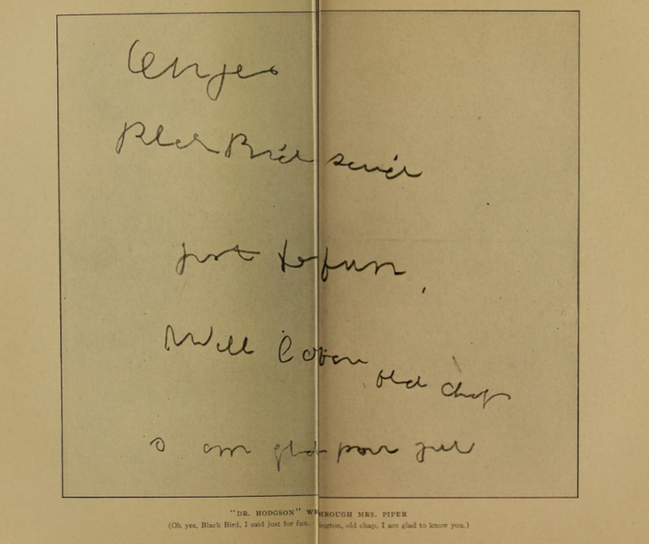 Oh yes
Black Bird I said
just for fun.
Well
old chap
am glad
"DR. HODGSON" W HROUGH MRS. PIPER
(Oh yes, Black Bird, I said just for fun. ington, old chap, I am glad to know you.)